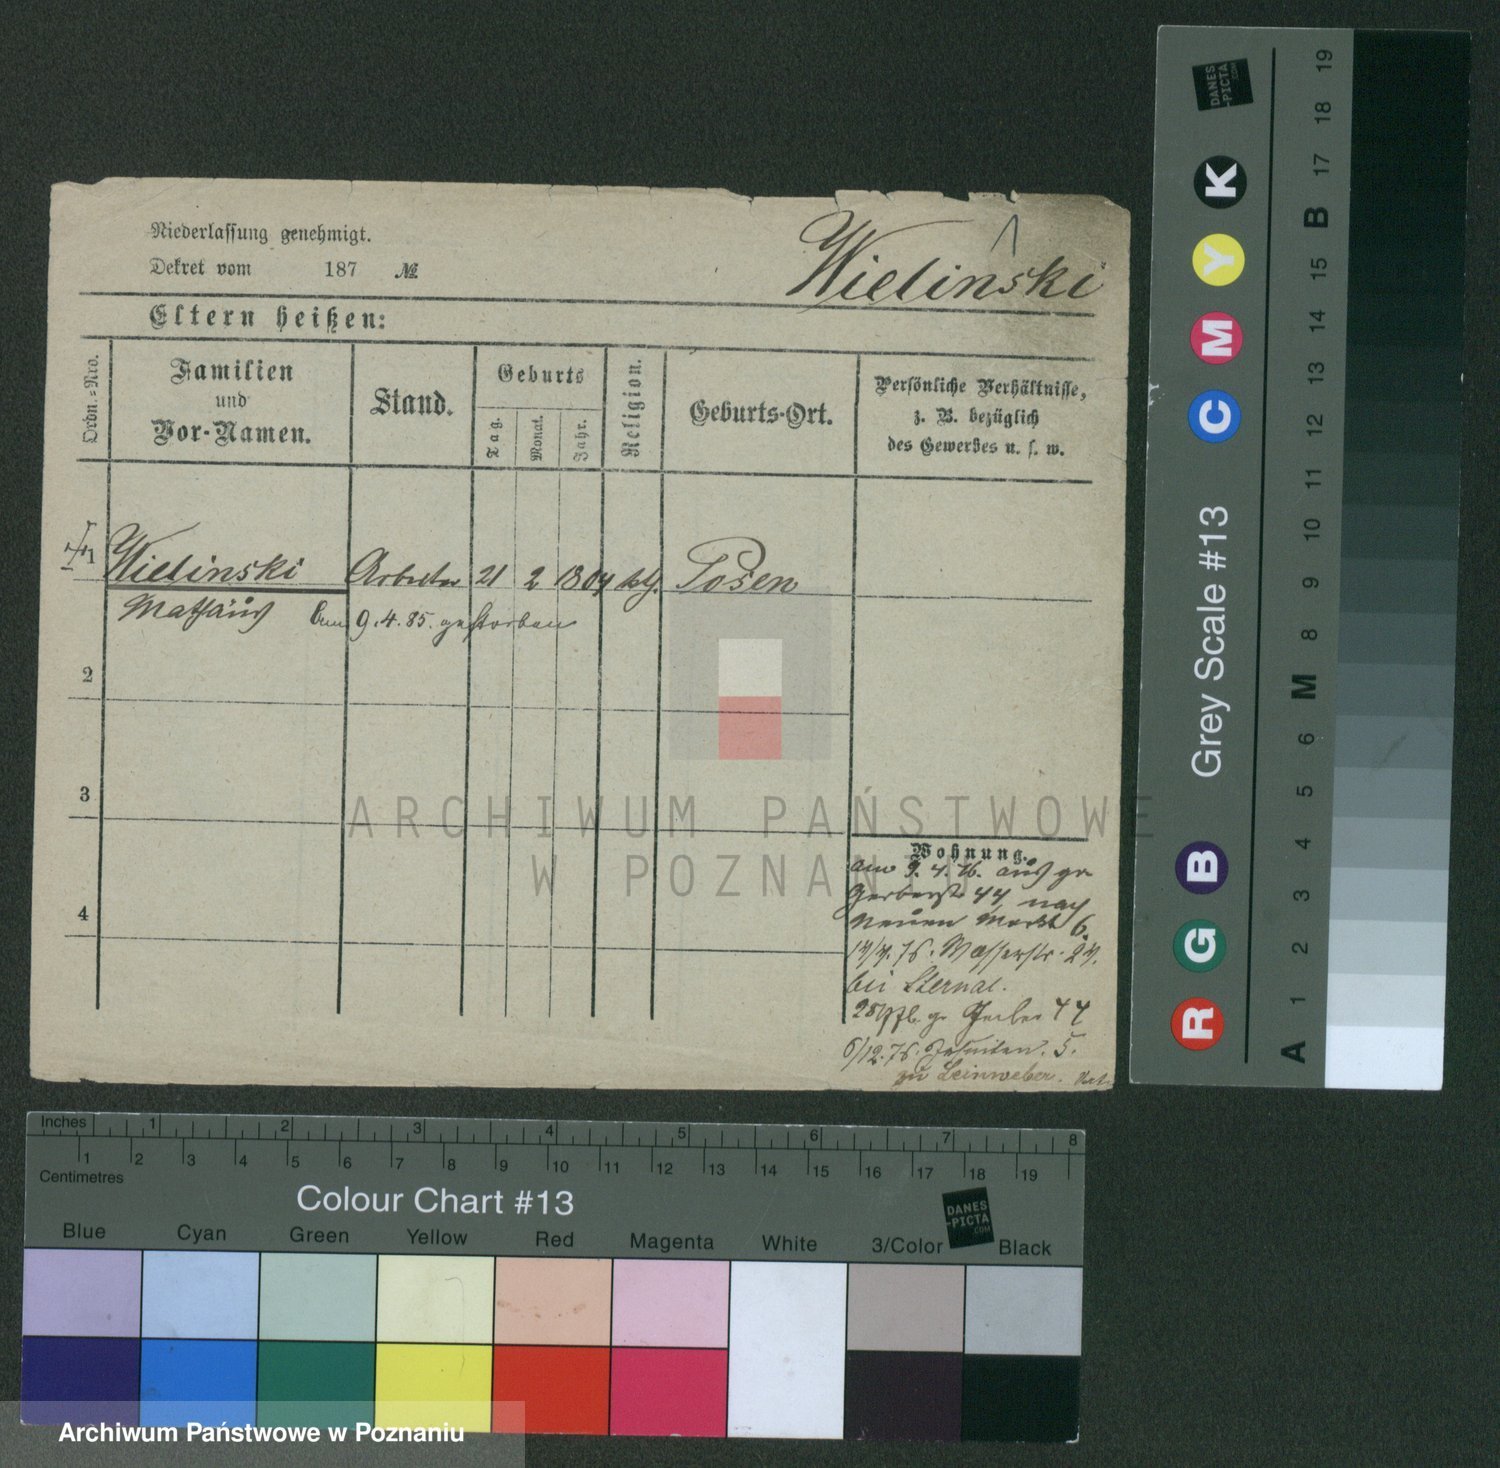 Niederlassung genehmigt.
Dekret vom 187 №
Wielinski
Eltern heißen:
Ordn.-Nro.
Familien
und
Vor-Namen.
Stand.
Geburts
Tag.
Monat.
Jahr.
Religion.
Geburts-Ort.
Persönliche Verhältnisse,
z. B. bezüglich
des Gewerbes u. s. w.
1
Wielinski Arbeiter 21 2 1804 kth. Posen
Mathäus
9.4.85. gestorben
2
3
4
Wohnung.
am 9.4.76. aus gr
Gerberstr 44 nach
Neuen Markt 6.
Wasserstr. 24.
bei Sternal.
gr Gerber 44
6/12.76. Jesuiten. 5.
zu Leinweber.
ARCHIWUM PAŃSTWOWE
W POZNANIU
DANES
-PICTA
.COM
K
Y
M
C
Grey Scale #13
B
G
R
A 1 2 3 4 5 6 M 8 9 10 11 12 13 14 15 B 17 18 19
Inches 1 2 3 4 5 6 7 8
1 2 3 4 5 6 7 8 9 10 11 12 13 14 15 16 17 18 19
Centimetres
Colour Chart #13
DANES
-PICTA
.COM
Blue Cyan Green Yellow Red Magenta White 3/Color Black
Archiwum Państwowe w Poznaniu